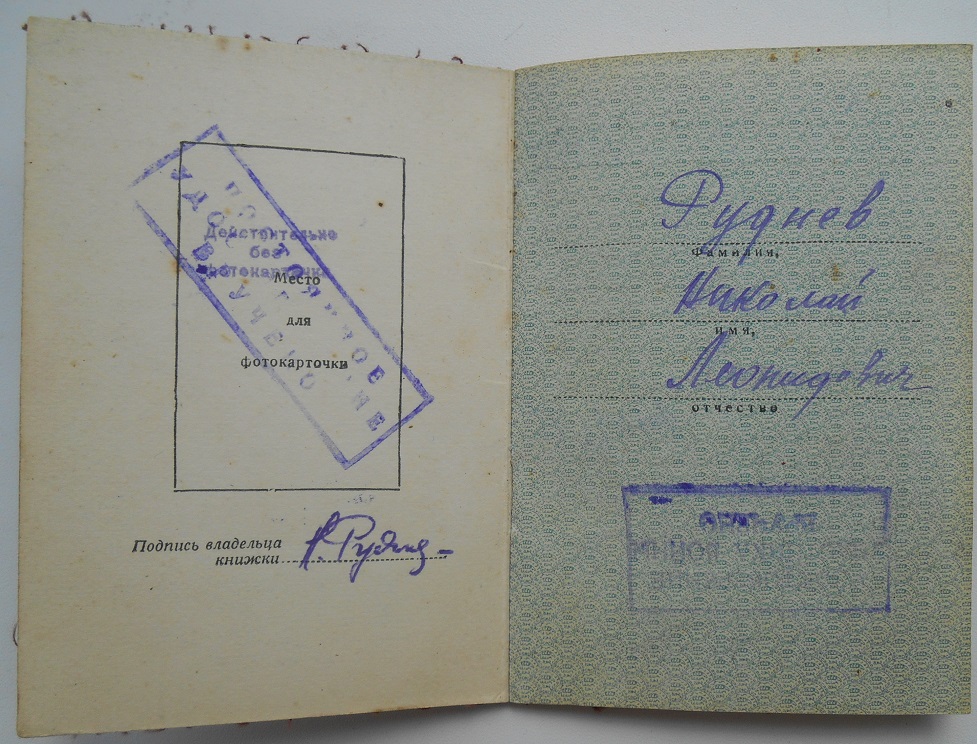 Действительно
без
фотокарточки
ПОСТОЯННОЕ
УДОСТОВЕРЕНИЕ
ВРУЧЕНО
Место
для
фотокарточки
Подпись владельца
книжки
Н. Руднев
Руднев
фамилия,
Николай
имя,
Леонидович
отчество